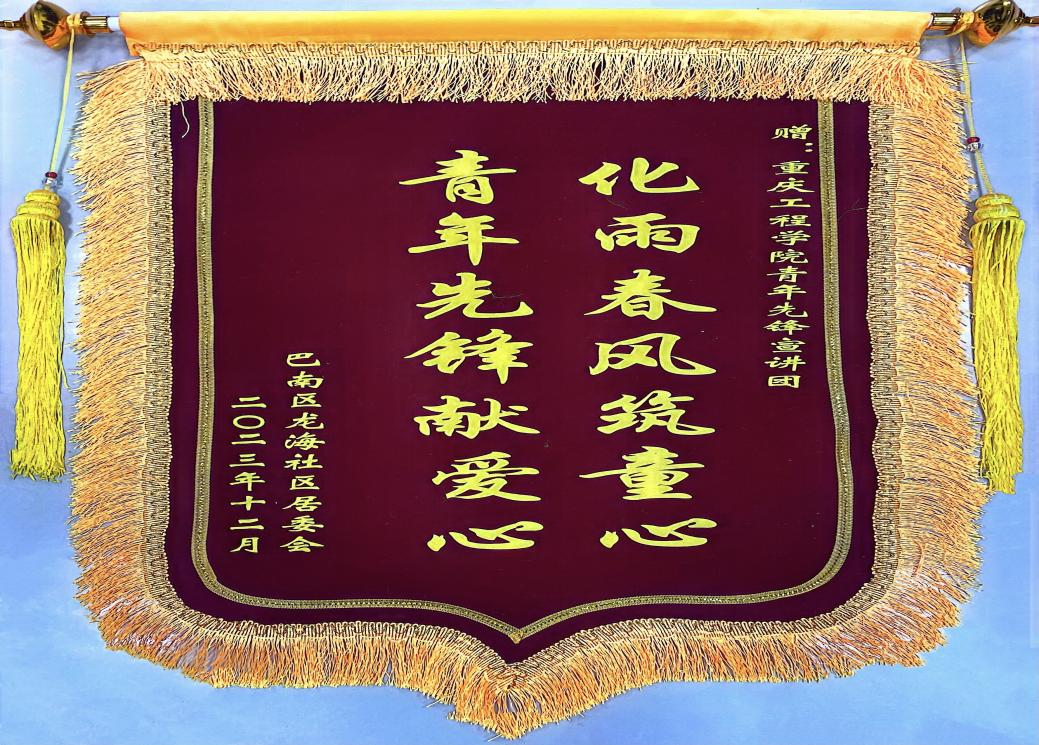 赠：重庆工程学院青年先锋宣讲团
化雨春风筑童心
青年先锋献爱心
巴南区龙海社区居委会
二〇二三年十二月